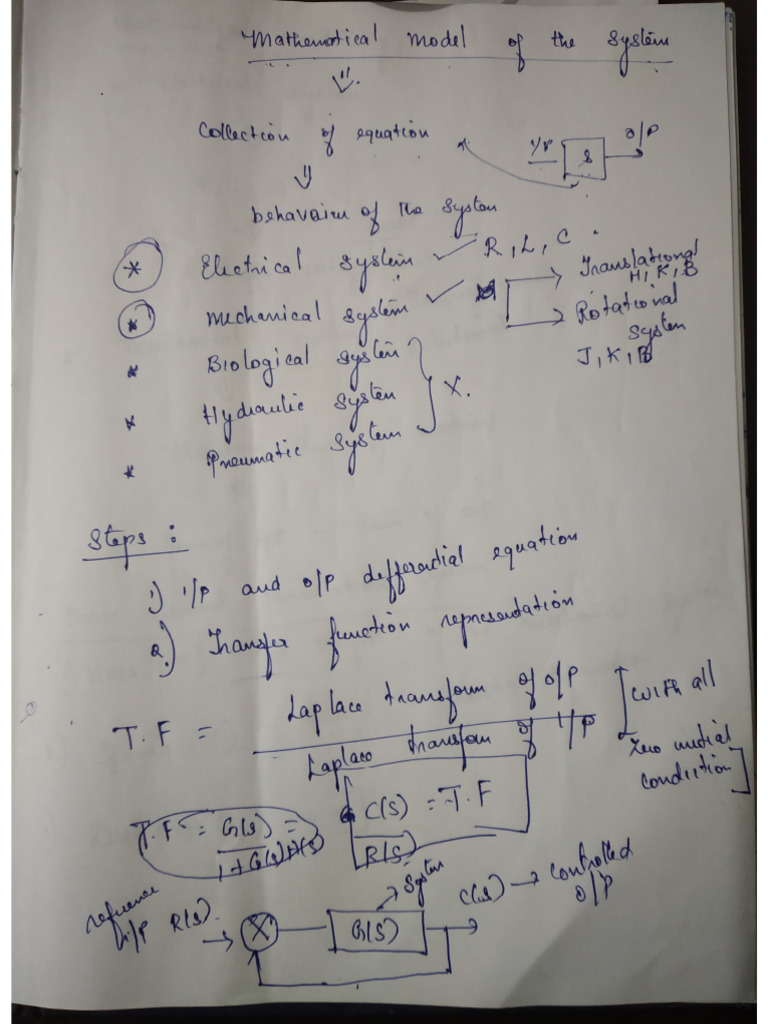 Mathematical model of the system
Collection of equation
I/P S O/P
behavoiur of the system
* Electrical system ✓ R, L, C.
* Mechanical system ✓
Translational
M, K, B
Rotational
system
J, K, B
* Biological system
* Hydraulic system
X.
* Pneumatic system
Steps :
1) I/P and O/P differential equation
2.) Transfer function representation
T.F = Laplace transform of O/P
Laplace transfom of I/P
[with all
zero initial
condition]
T.F = G(s) =
1+G(s)H(s)
C(s) = T.F
R(s)
System
reference
i/P R(s).
X
G(s)
C(s) → controlled
O/P